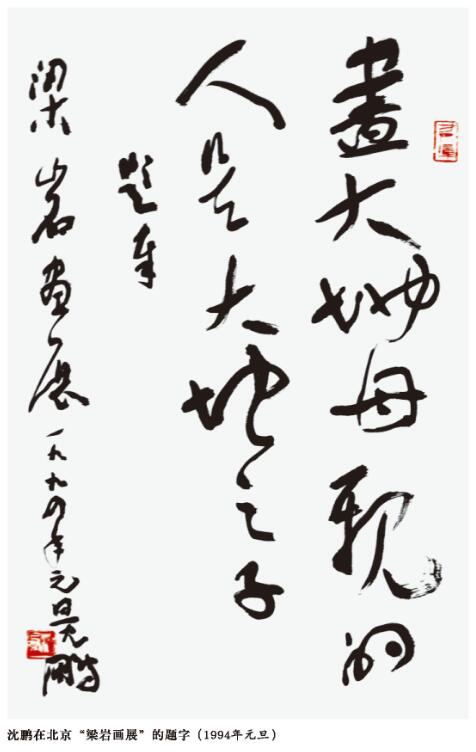 畫大地母親的
人是大地之子
題奉
梁岩畫展一九九四年元旦沈鵬
沈鹏在北京“梁岩画展”的题字（1994年元旦）